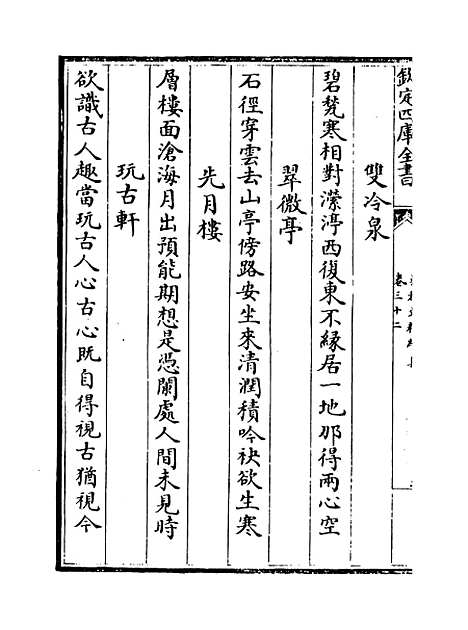 欽定四庫全書
卷三十二
雙冷泉
碧甃寒相對濴渟西復東不緣居一地那得兩心空
翠微亭
石徑穿雲去山亭傍路安坐來清潤積吟袂欲生寒
先月樓
層樓面滄海月出預能期想是憑闌處人間未見時
玩古軒
欲識古人趣當玩古人心古心既自得視古猶視今